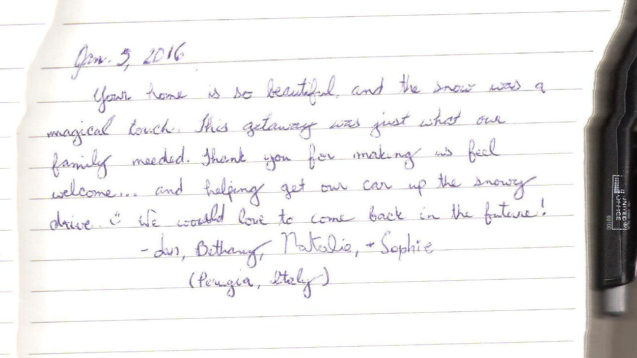 Jan. 3, 2016
Your home is so beautiful, and the snow was a
magical touch. This getaway was just what our
family needed. Thank you for making us feel
welcome... and helping get our car up the snowy
drive. ☺ We would love to come back in the future!
- Bethany, Natalie, + Sophie
(Perugia, Italy)
UNITED
OFFICE